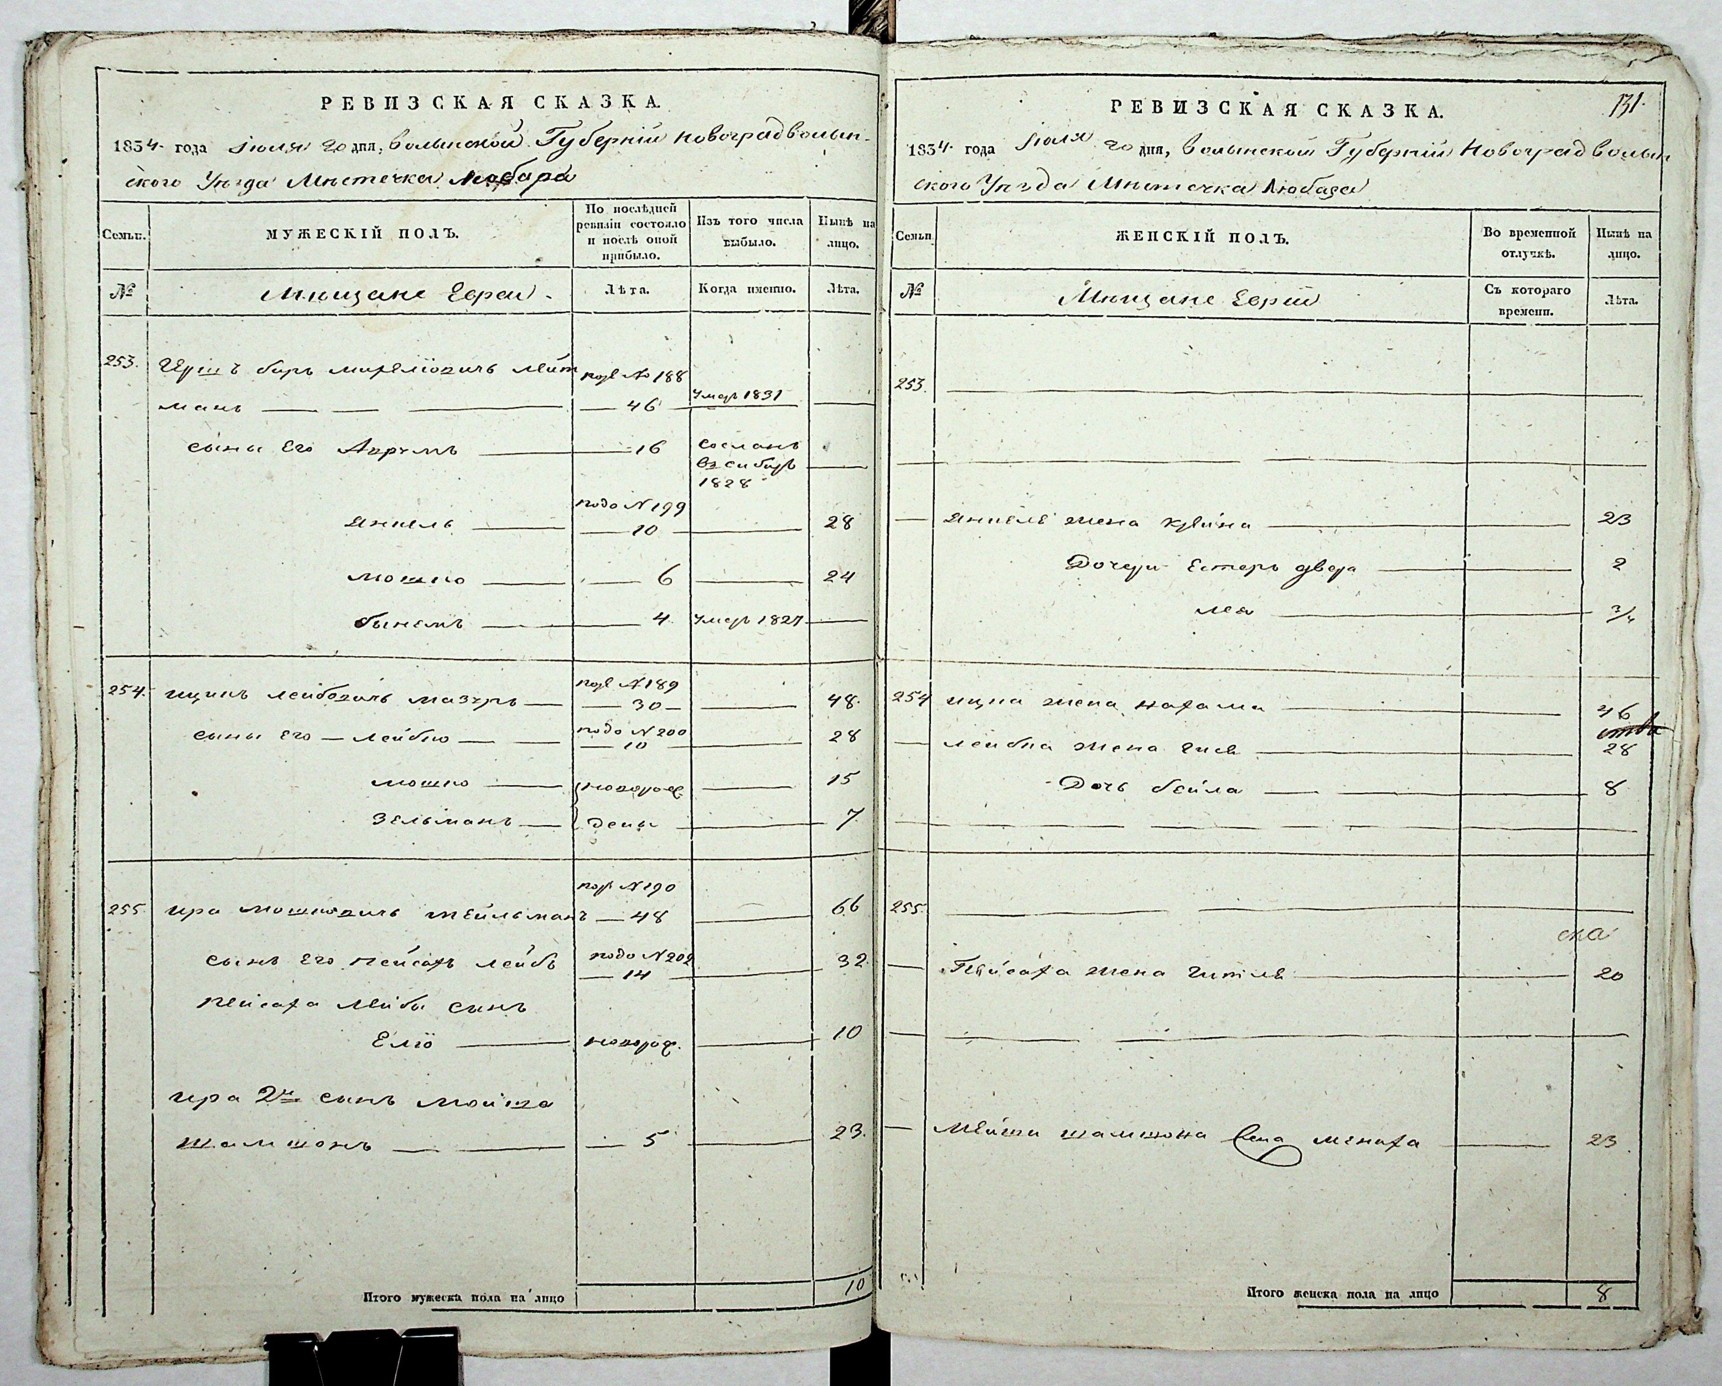 РЕВИЗСКАЯ СКАЗКА.
1834 года Іюля 20 дня, Волынской Губерніи Новоградволын-
ского Уѣзда Мѣстечка Любара
Семьи.
МУЖЕСКІЙ ПОЛЪ.
По послѣдней ревизіи состояло и послѣ оной прибыло.
Изъ того числа выбыло.
Нынѣ на лицо.
№
Мѣщане Евреи.
Лѣта.
Когда именно.
Лѣта.
253. Гершъ беръ Лейт подъ №188
манъ 46 умеръ 1831
сыны его Аврумъ 16 сосланъ
въ сибирь
1828
подо №199
Янкель 10 28
Мошко 6 24
бынемъ 4 умеръ 1827
254. Ицикъ Лейбовичъ Мазуръ подъ №189
30 48
сыны его Лейбко подо №200
10 28
Мошко новорож 15
Зельманъ дены 7
подъ №190
255 Ира Мошковичъ Тейльманъ 48 66
сынъ его Пейсахъ Лейбъ подо №202
14 32
Пейсаха Лейбы сынъ
Еліо новорож. 10
Ира 2й сынъ Мойша
Шамшонъ 5 23.
Итого мужеска пола на лицо 10
131.
РЕВИЗСКАЯ СКАЗКА.
1834 года Іюля 20 дня, Волынской Губерніи Новоградволын
ского Уѣзда Мѣстечка Любара
Семьи
ЖЕНСКІЙ ПОЛЪ.
Во временной отлучкѣ.
Нынѣ на лицо.
№
Мѣщане Евреи
Съ котораго времени.
Лѣта.
253.
Янкеля жена Крейна 23
Дочери Естеръ двера 2
Лея 3/4
254 Ицка жена Нахама 46
Лейбка жена 28
Дочь бейла 8
255.
Пейсаха жена Гитля 20
Мейши Шамшона жена Менаха 23
Итого женска пола на лицо 8